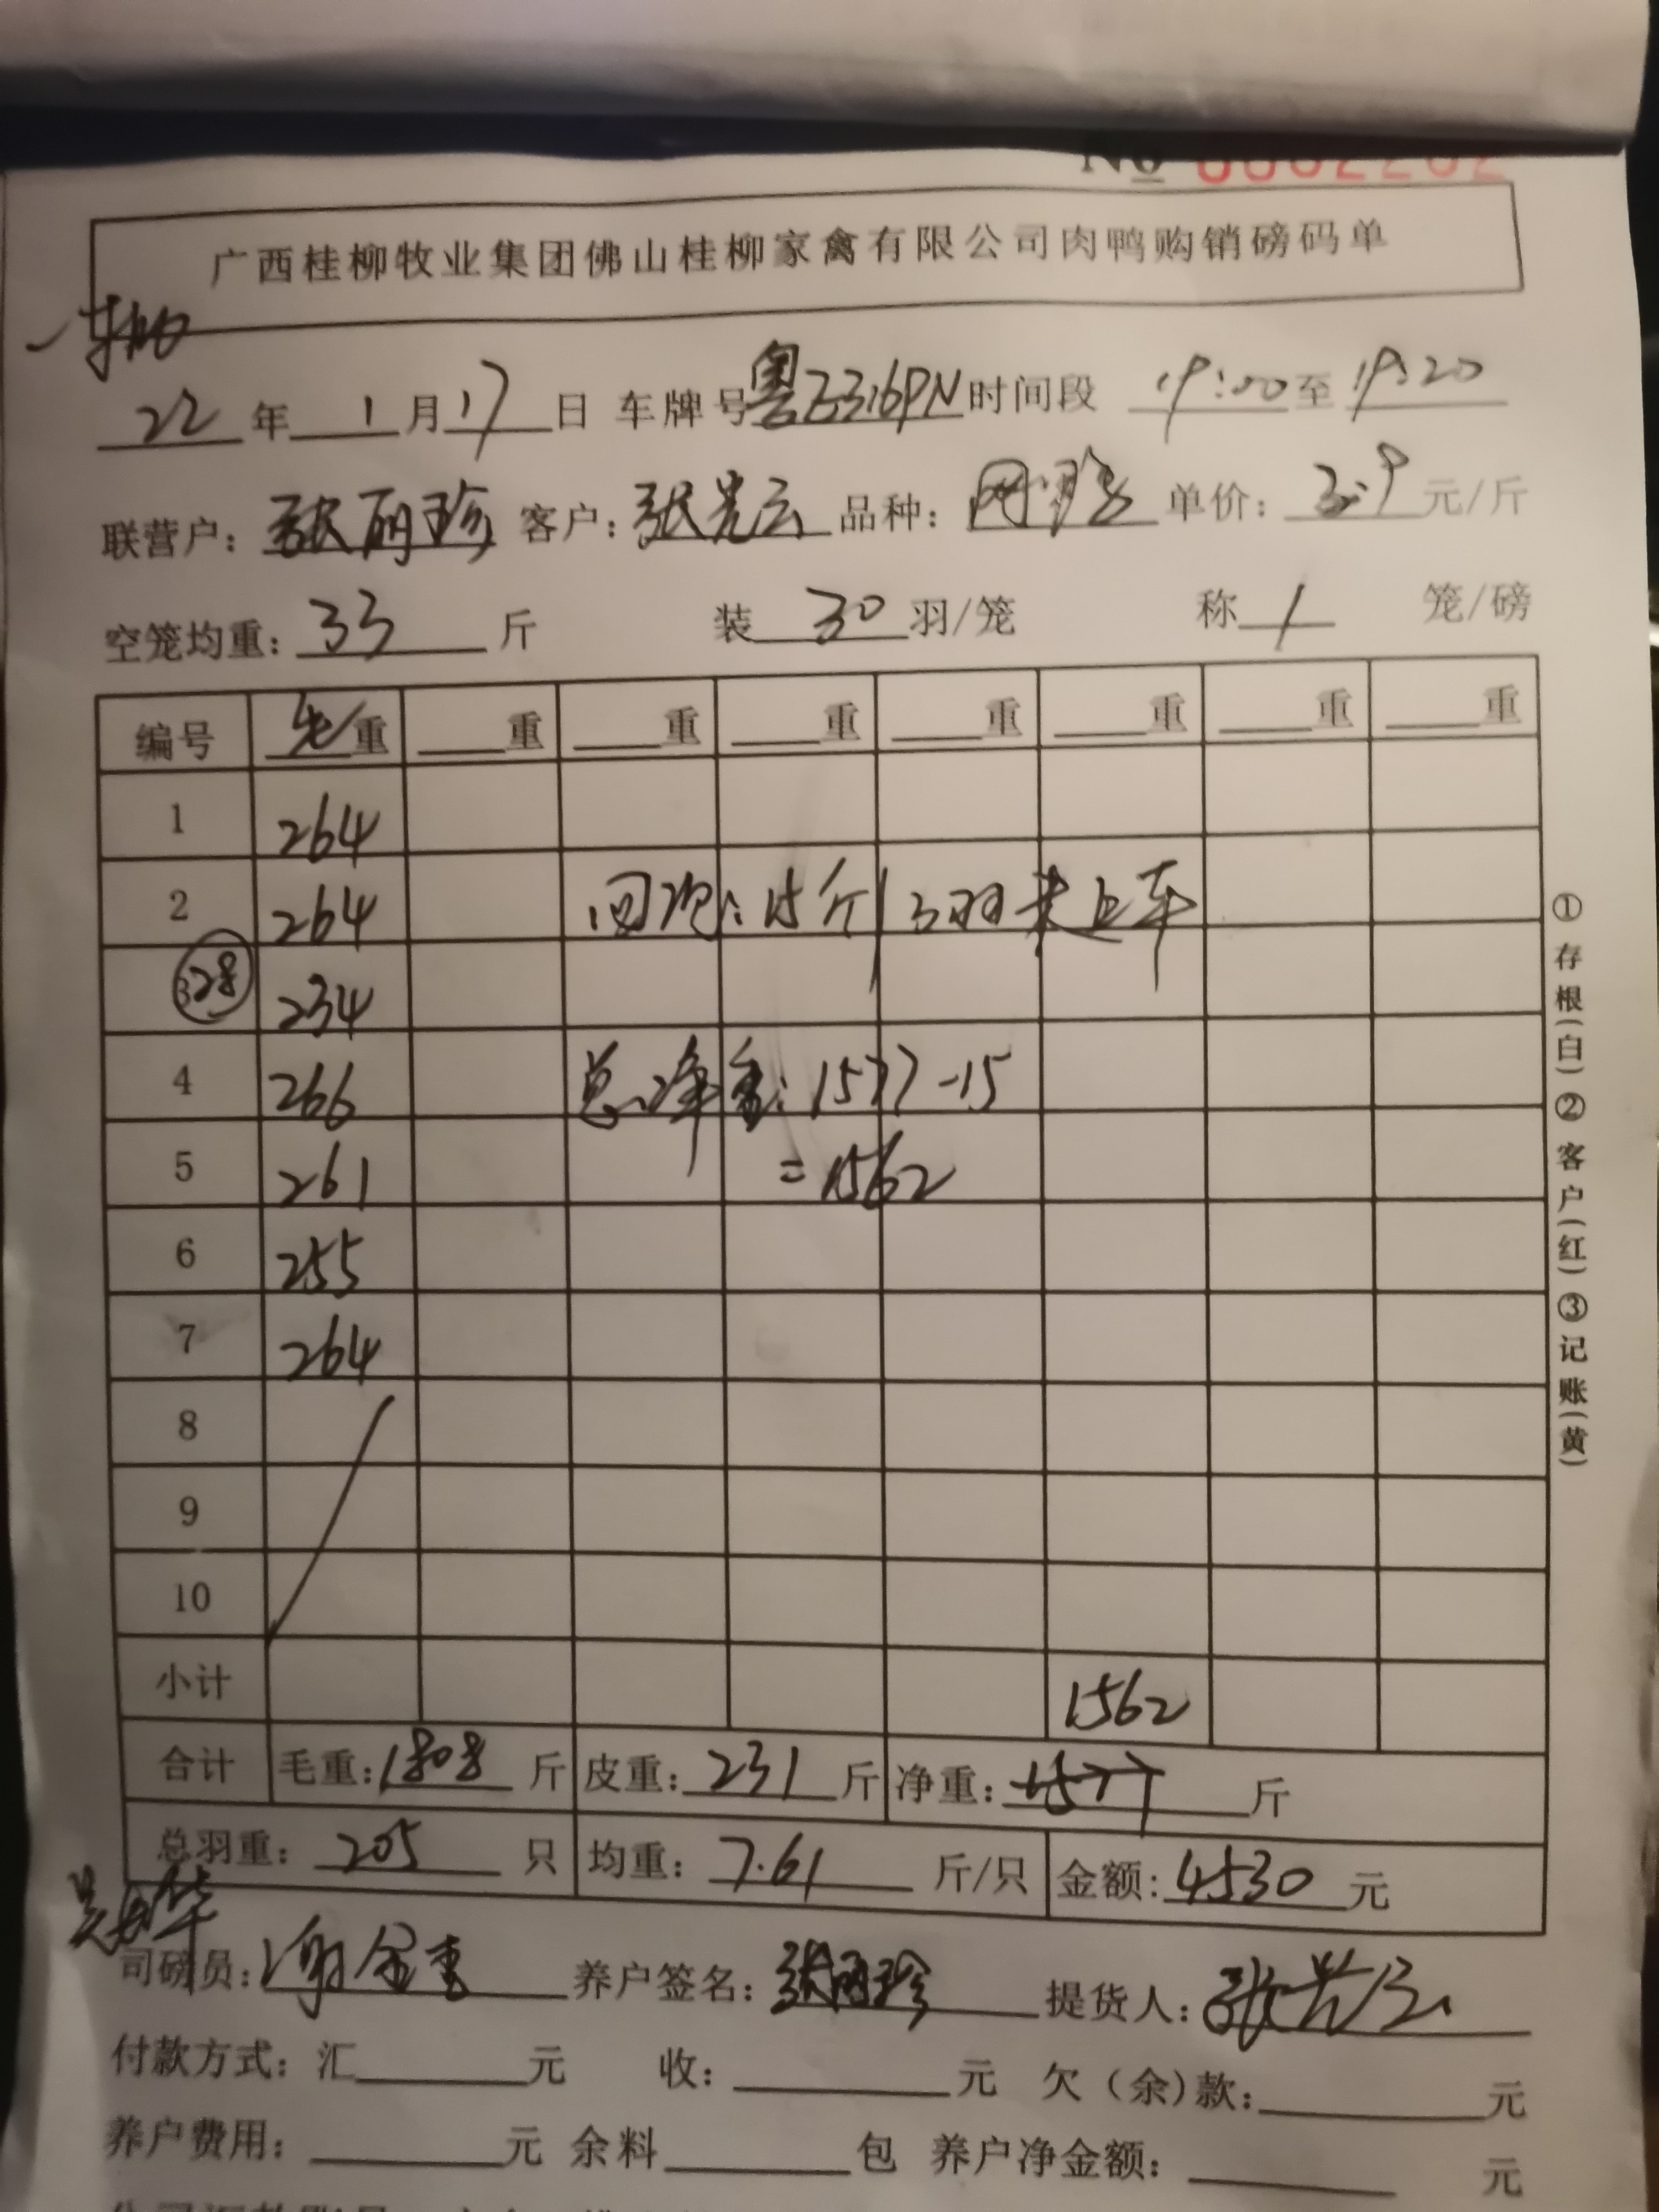 No 0002202
广西桂柳牧业集团佛山桂柳家禽有限公司肉鸭购销磅码单
22年1月17日 车牌号粤Z316PN时间段 19:00至19:20
联营户：张丽珍 客户：张光云 品种： 单价：2.9元/斤
空笼均重：33斤 装30羽/笼 称1笼/磅
编号 毛重 重 重 重 重 重 重 重
1 264
2 264 回 15斤 3羽未上车
3 28 234
4 266 总净重：1577-15
5 261 =1562
6 255
7 264
8
9
10
小计 1562
合计 毛重：1808斤 皮重：231斤 净重：1577斤
总羽重：205只 均重：7.61斤/只 金额：4530元
司磅员：谢金 养户签名：张丽珍 提货人：张光云
付款方式：汇元 收：元 欠（余）款：元
养户费用：元 余料包 养户净金额：元
①存根(白)②客户(红)③记账(黄)